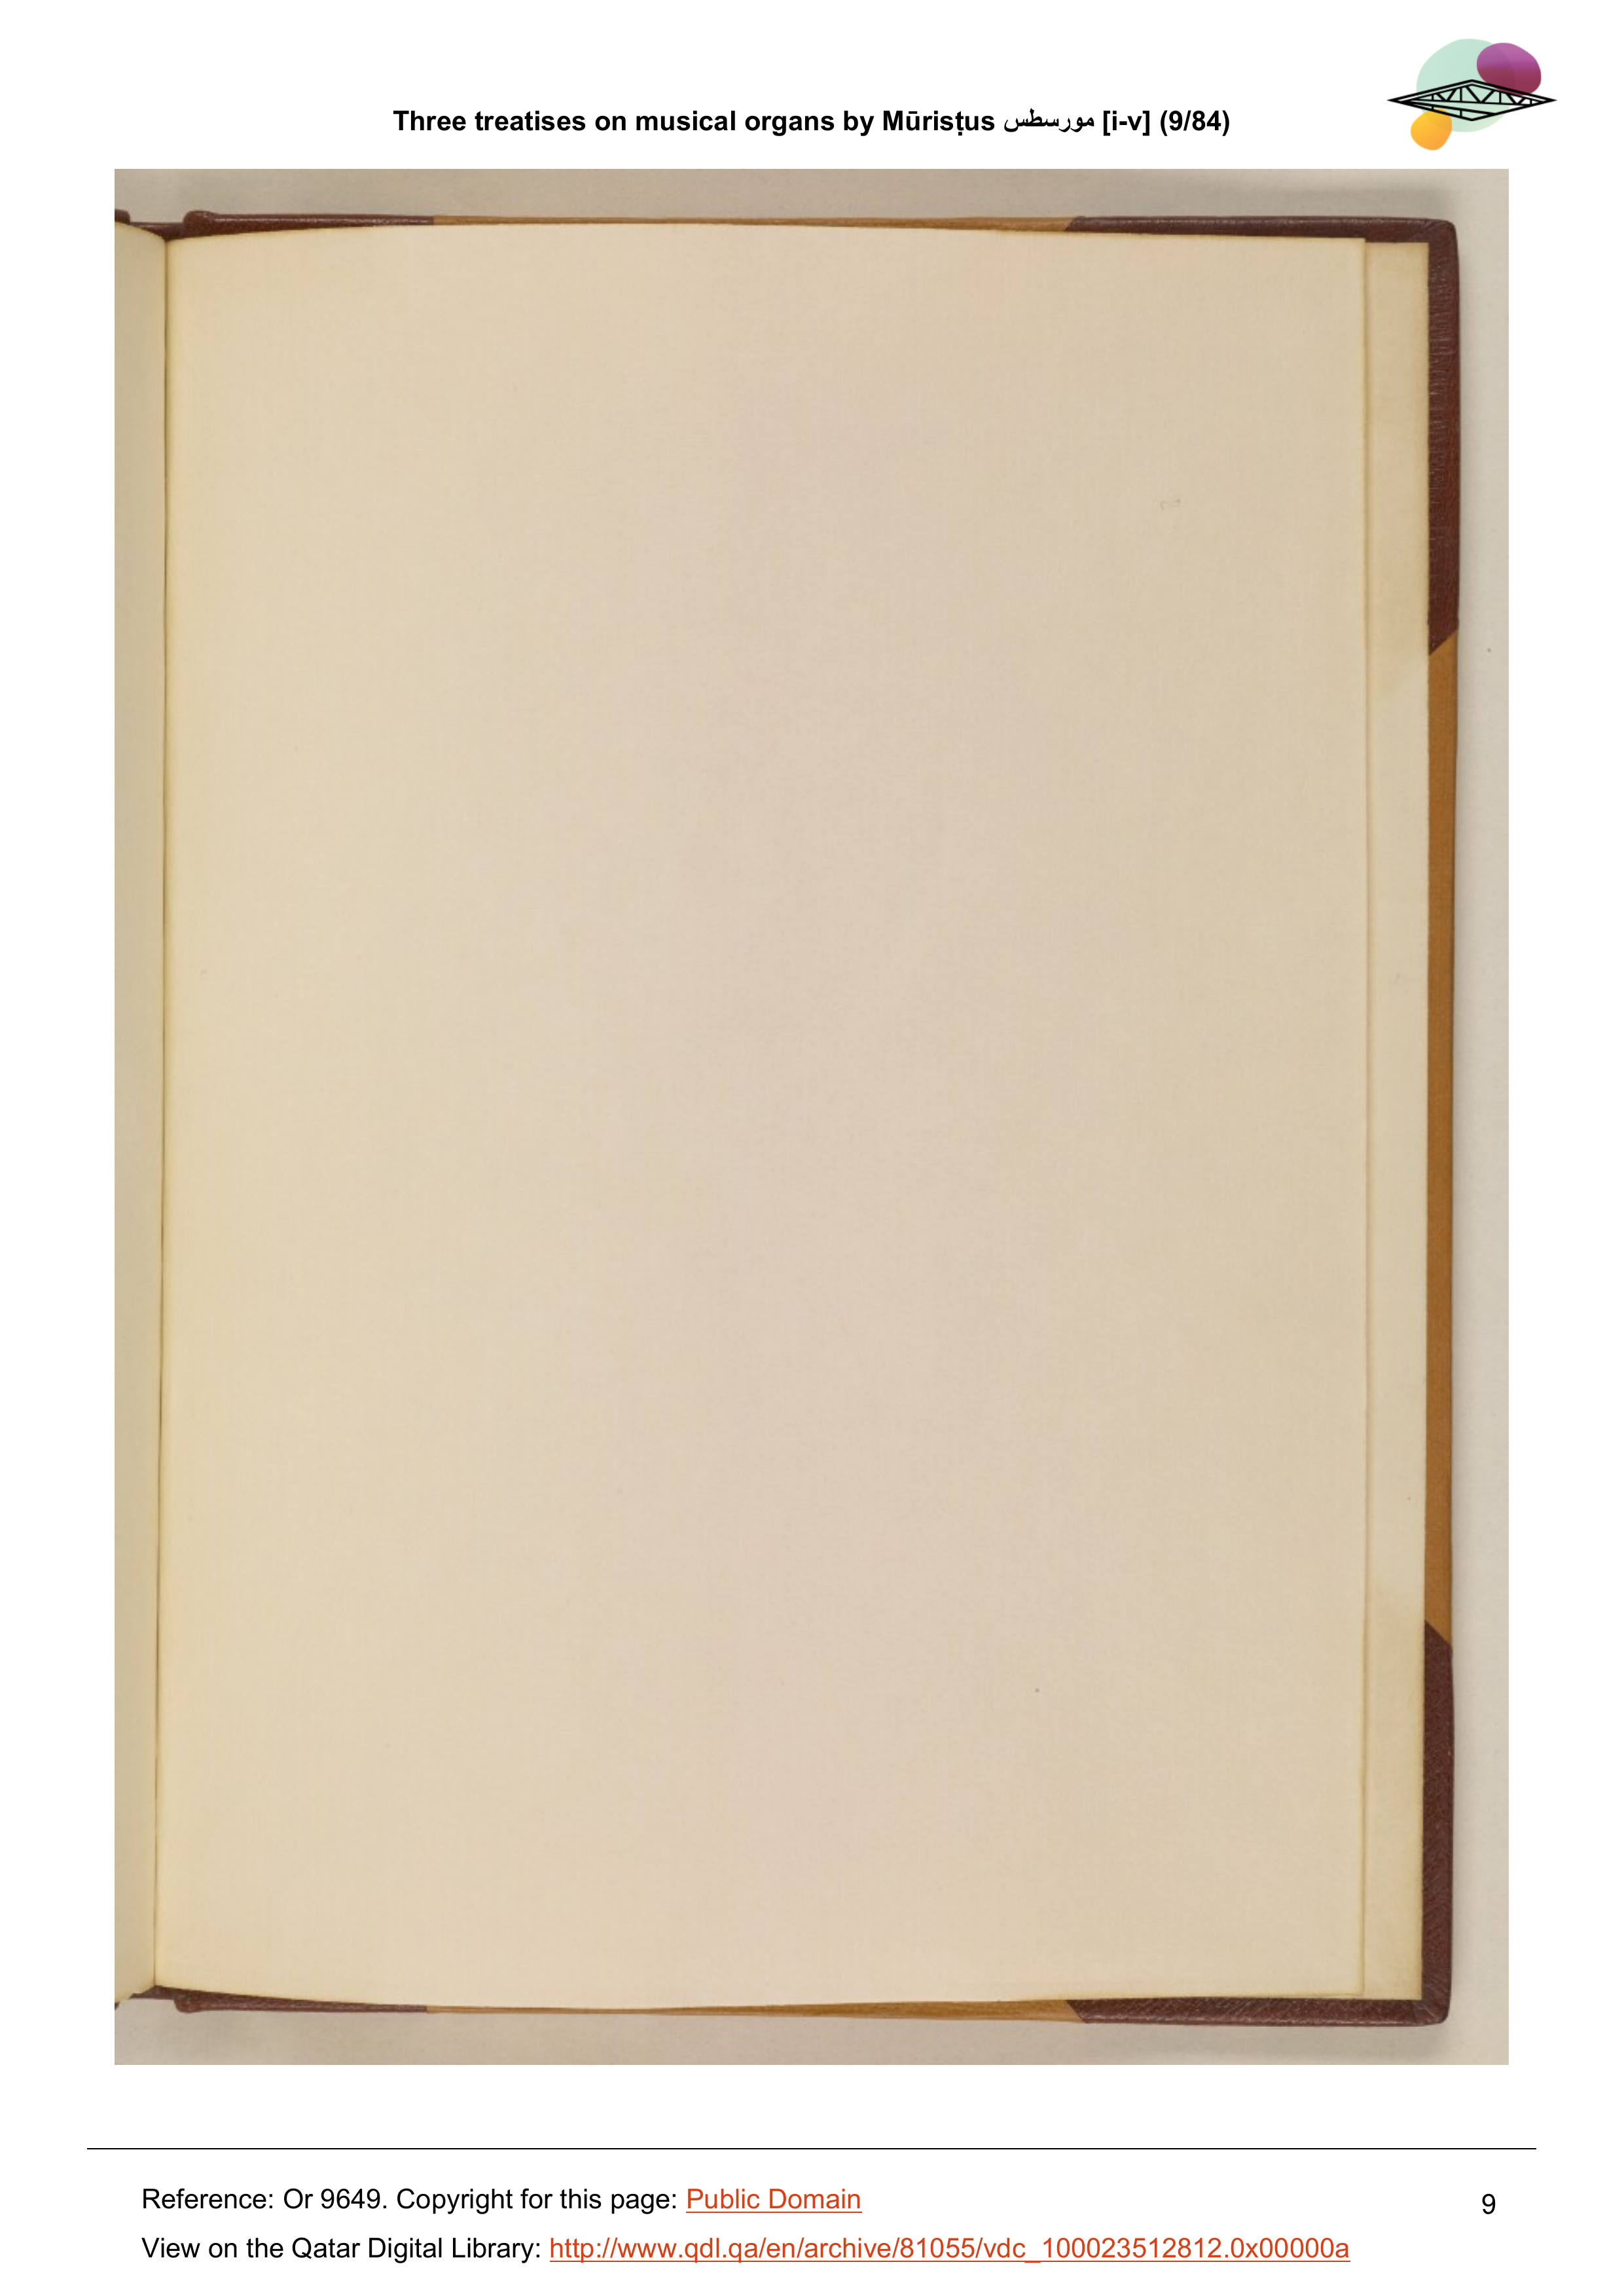 Three treatises on musical organs by Mūrisṭus مورسطس [i-v] (9/84)
Reference: Or 9649. Copyright for this page: Public Domain
9
View on the Qatar Digital Library: http://www.qdl.qa/en/archive/81055/vdc_100023512812.0x00000a